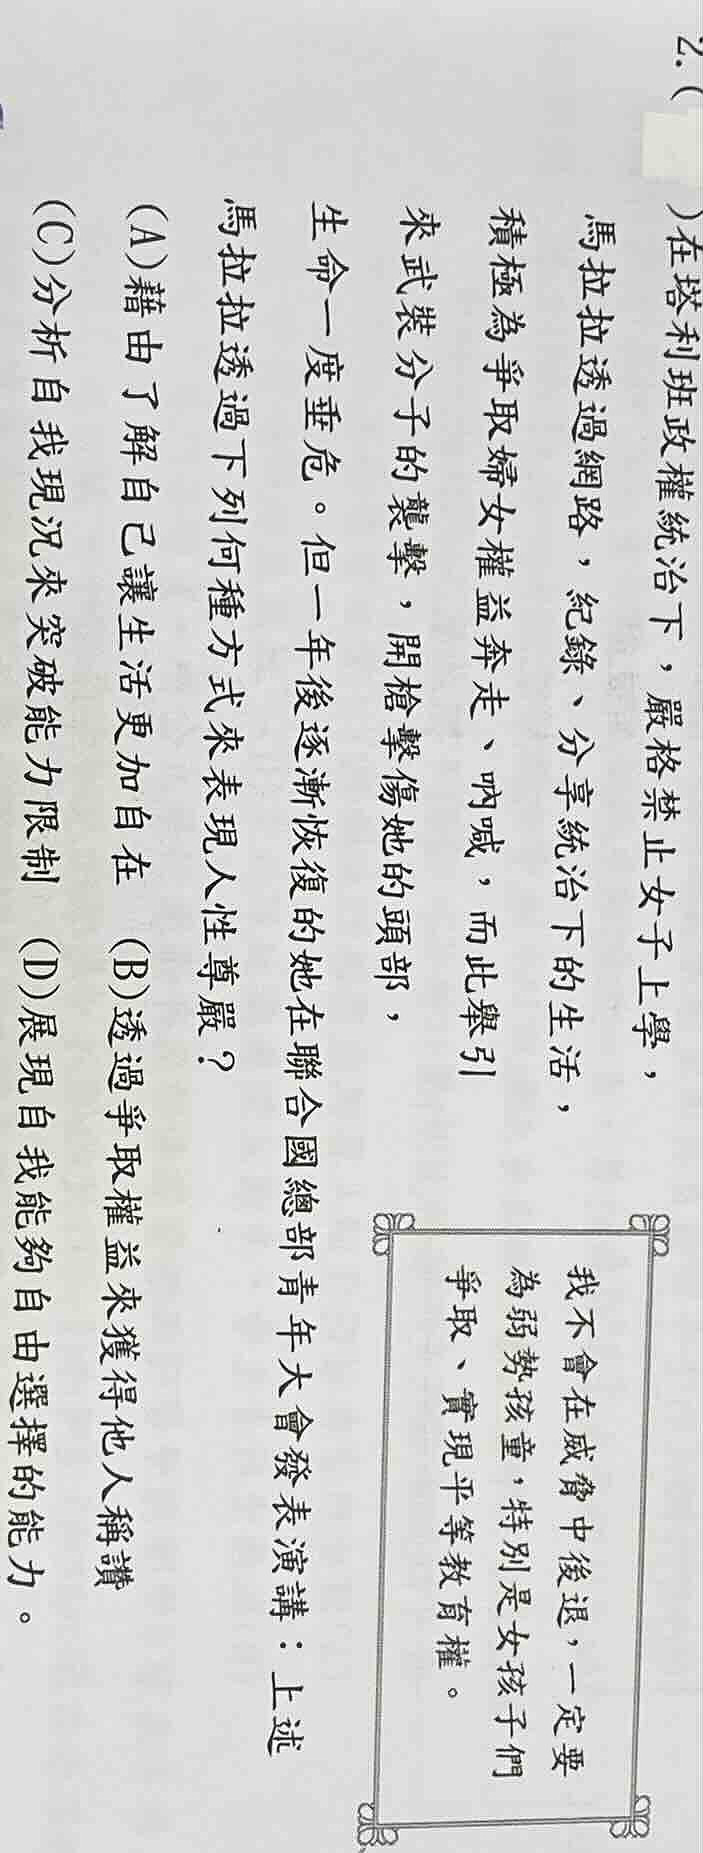 2.(　)在塔利班政權統治下，嚴格禁止女子上學，
馬拉拉透過網路，紀錄、分享統治下的生活，
積極為爭取婦女權益奔走、吶喊，而此舉引
來武裝分子的襲擊，開槍擊傷她的頭部，
生命一度垂危。但一年後逐漸恢復的她在聯合國總部青年大會發表演講：上述
馬拉拉透過下列何種方式來表現人性尊嚴？
(A)藉由了解自己讓生活更加自在　(B)透過爭取權益來獲得他人稱讚
(C)分析自我現況來突破能力限制　(D)展現自我能夠自由選擇的能力。
我不會在威脅中後退，一定要
為弱勢孩童，特別是女孩子們
爭取、實現平等教育權。